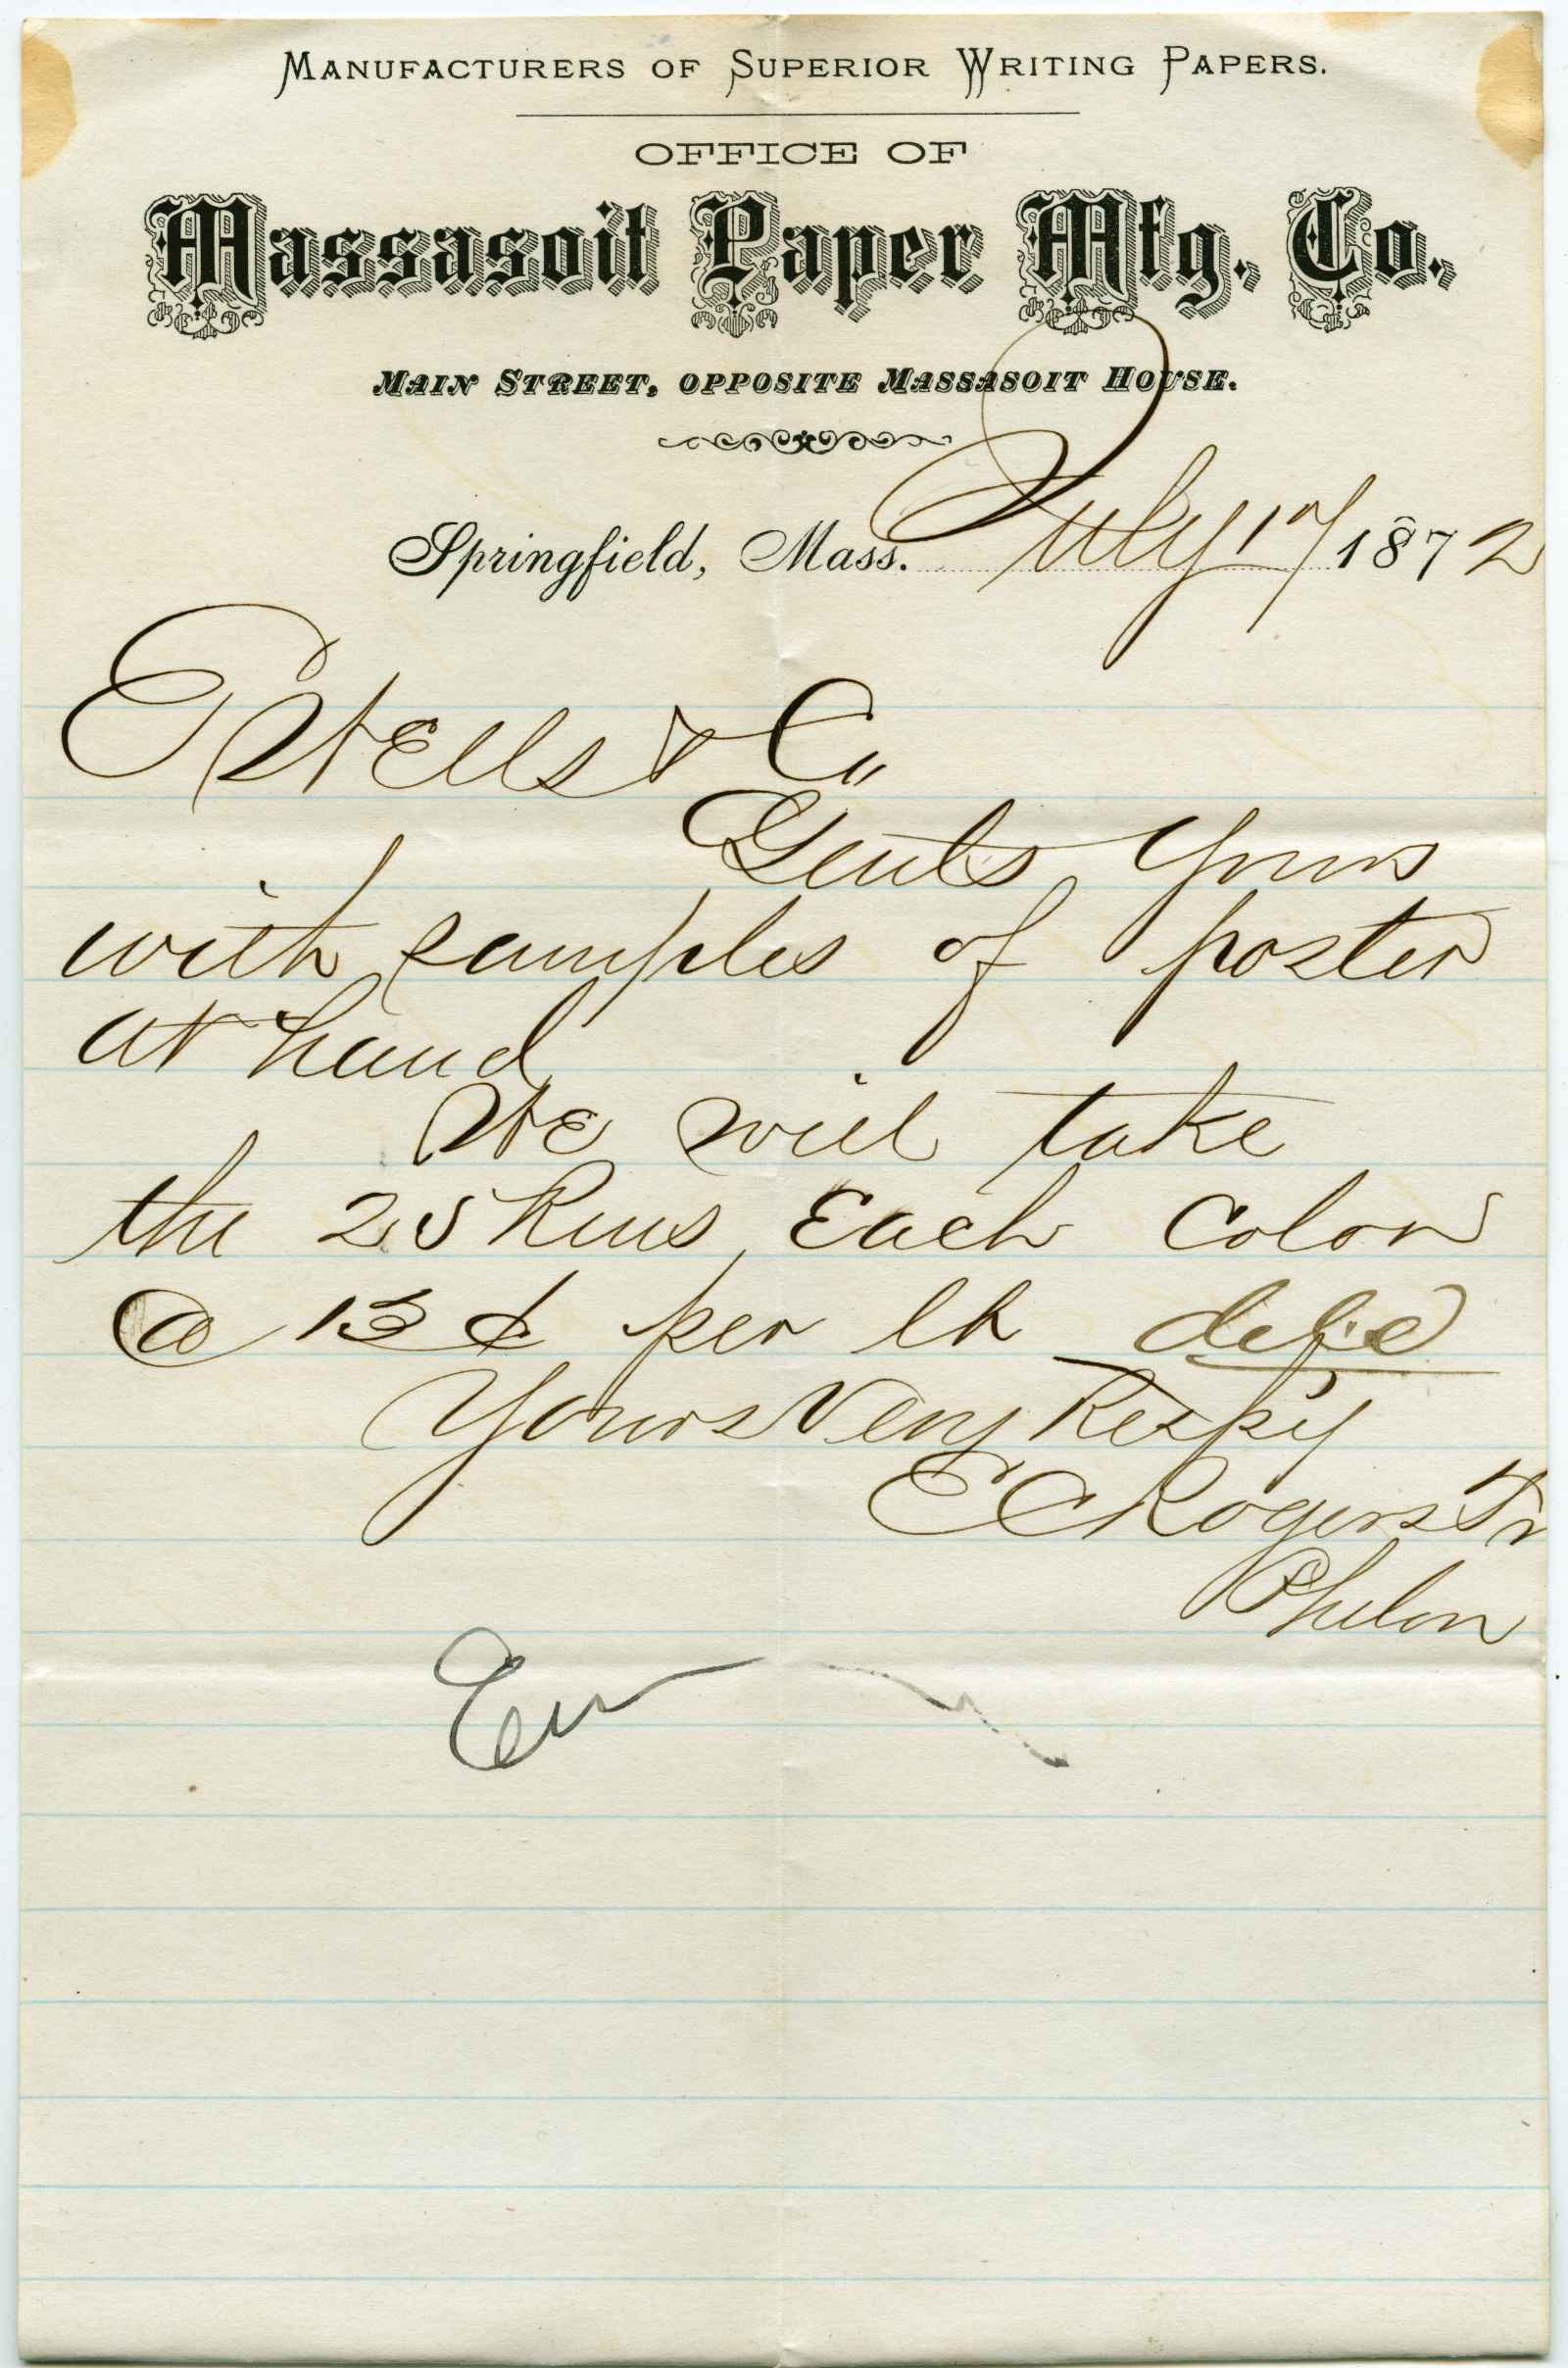 MANUFACTURERS OF SUPERIOR WRITING PAPERS.
OFFICE OF
Massasoit Paper Mfg. Co.
MAIN STREET, OPPOSITE MASSASOIT HOUSE.
Springfield, Mass. July 17 1872
P Wells & Co
Gents Yours
with samples of poster
at hand
We will take
the 25 Rms, Each Color
@ 13 ¢ per lb deld
Yours Very Resp'y
E C Rogers Tr
Phelon